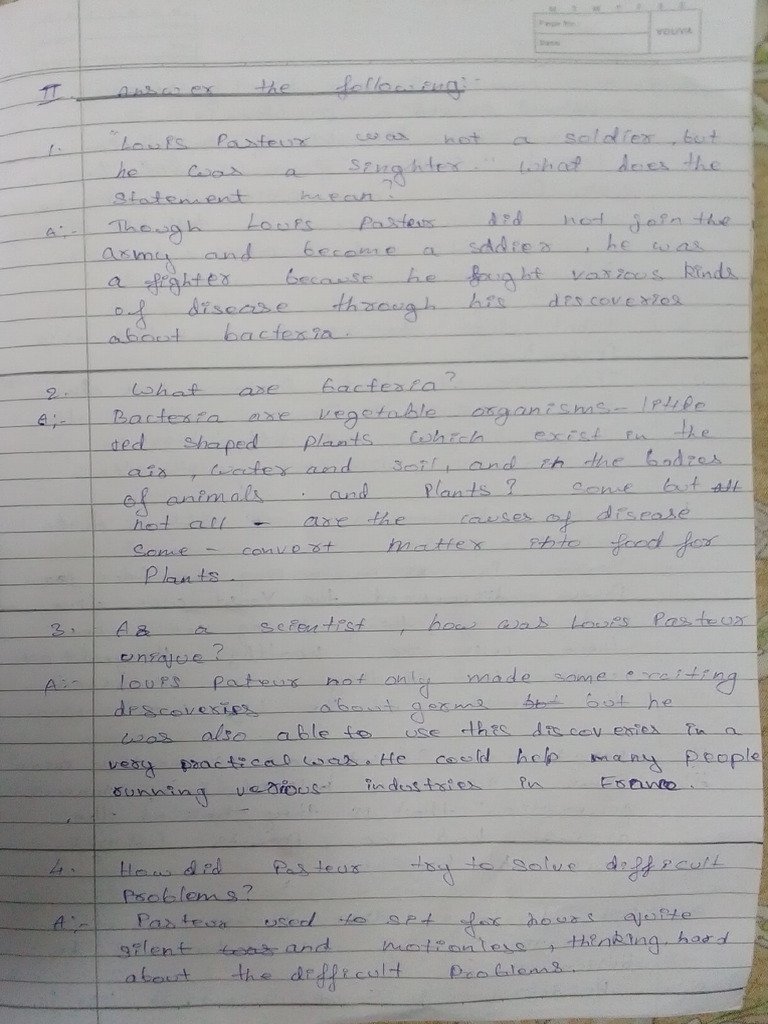 M T W T F S S
Page No.:
Date:
YOUVA
II. Answer the following:-
1. "Louis Pasteur was not a soldier, but
he was a singhter." What does the
statement mean?
A:- Though Louis Pasteur did not join the
army and become a soldier, he was
a fighter because he fought various kinds
of disease through his discoveries
about bacteria.
2. What are bacteria?
A:- Bacteria are vegetable organisms-
red shaped plants which exist in the
air, water and soil, and in the bodies
of animals. and Plants? Some but all
not all - are the causes of disease
Some - convert matter into food for
Plants.
3. As a scientist, how was Louis Pasteur
unique?
A:- Louis Pateur not only made some exciting
discoveries about germs but but he
was also able to use this discoveries in a
very practical was. He could help many people
running various industries in France.
4. How did Pasteur try to solve difficult
Problems?
A:- Pasteur used to set for hours quite
silent and motionless, thinking hard
about the difficult Problems.